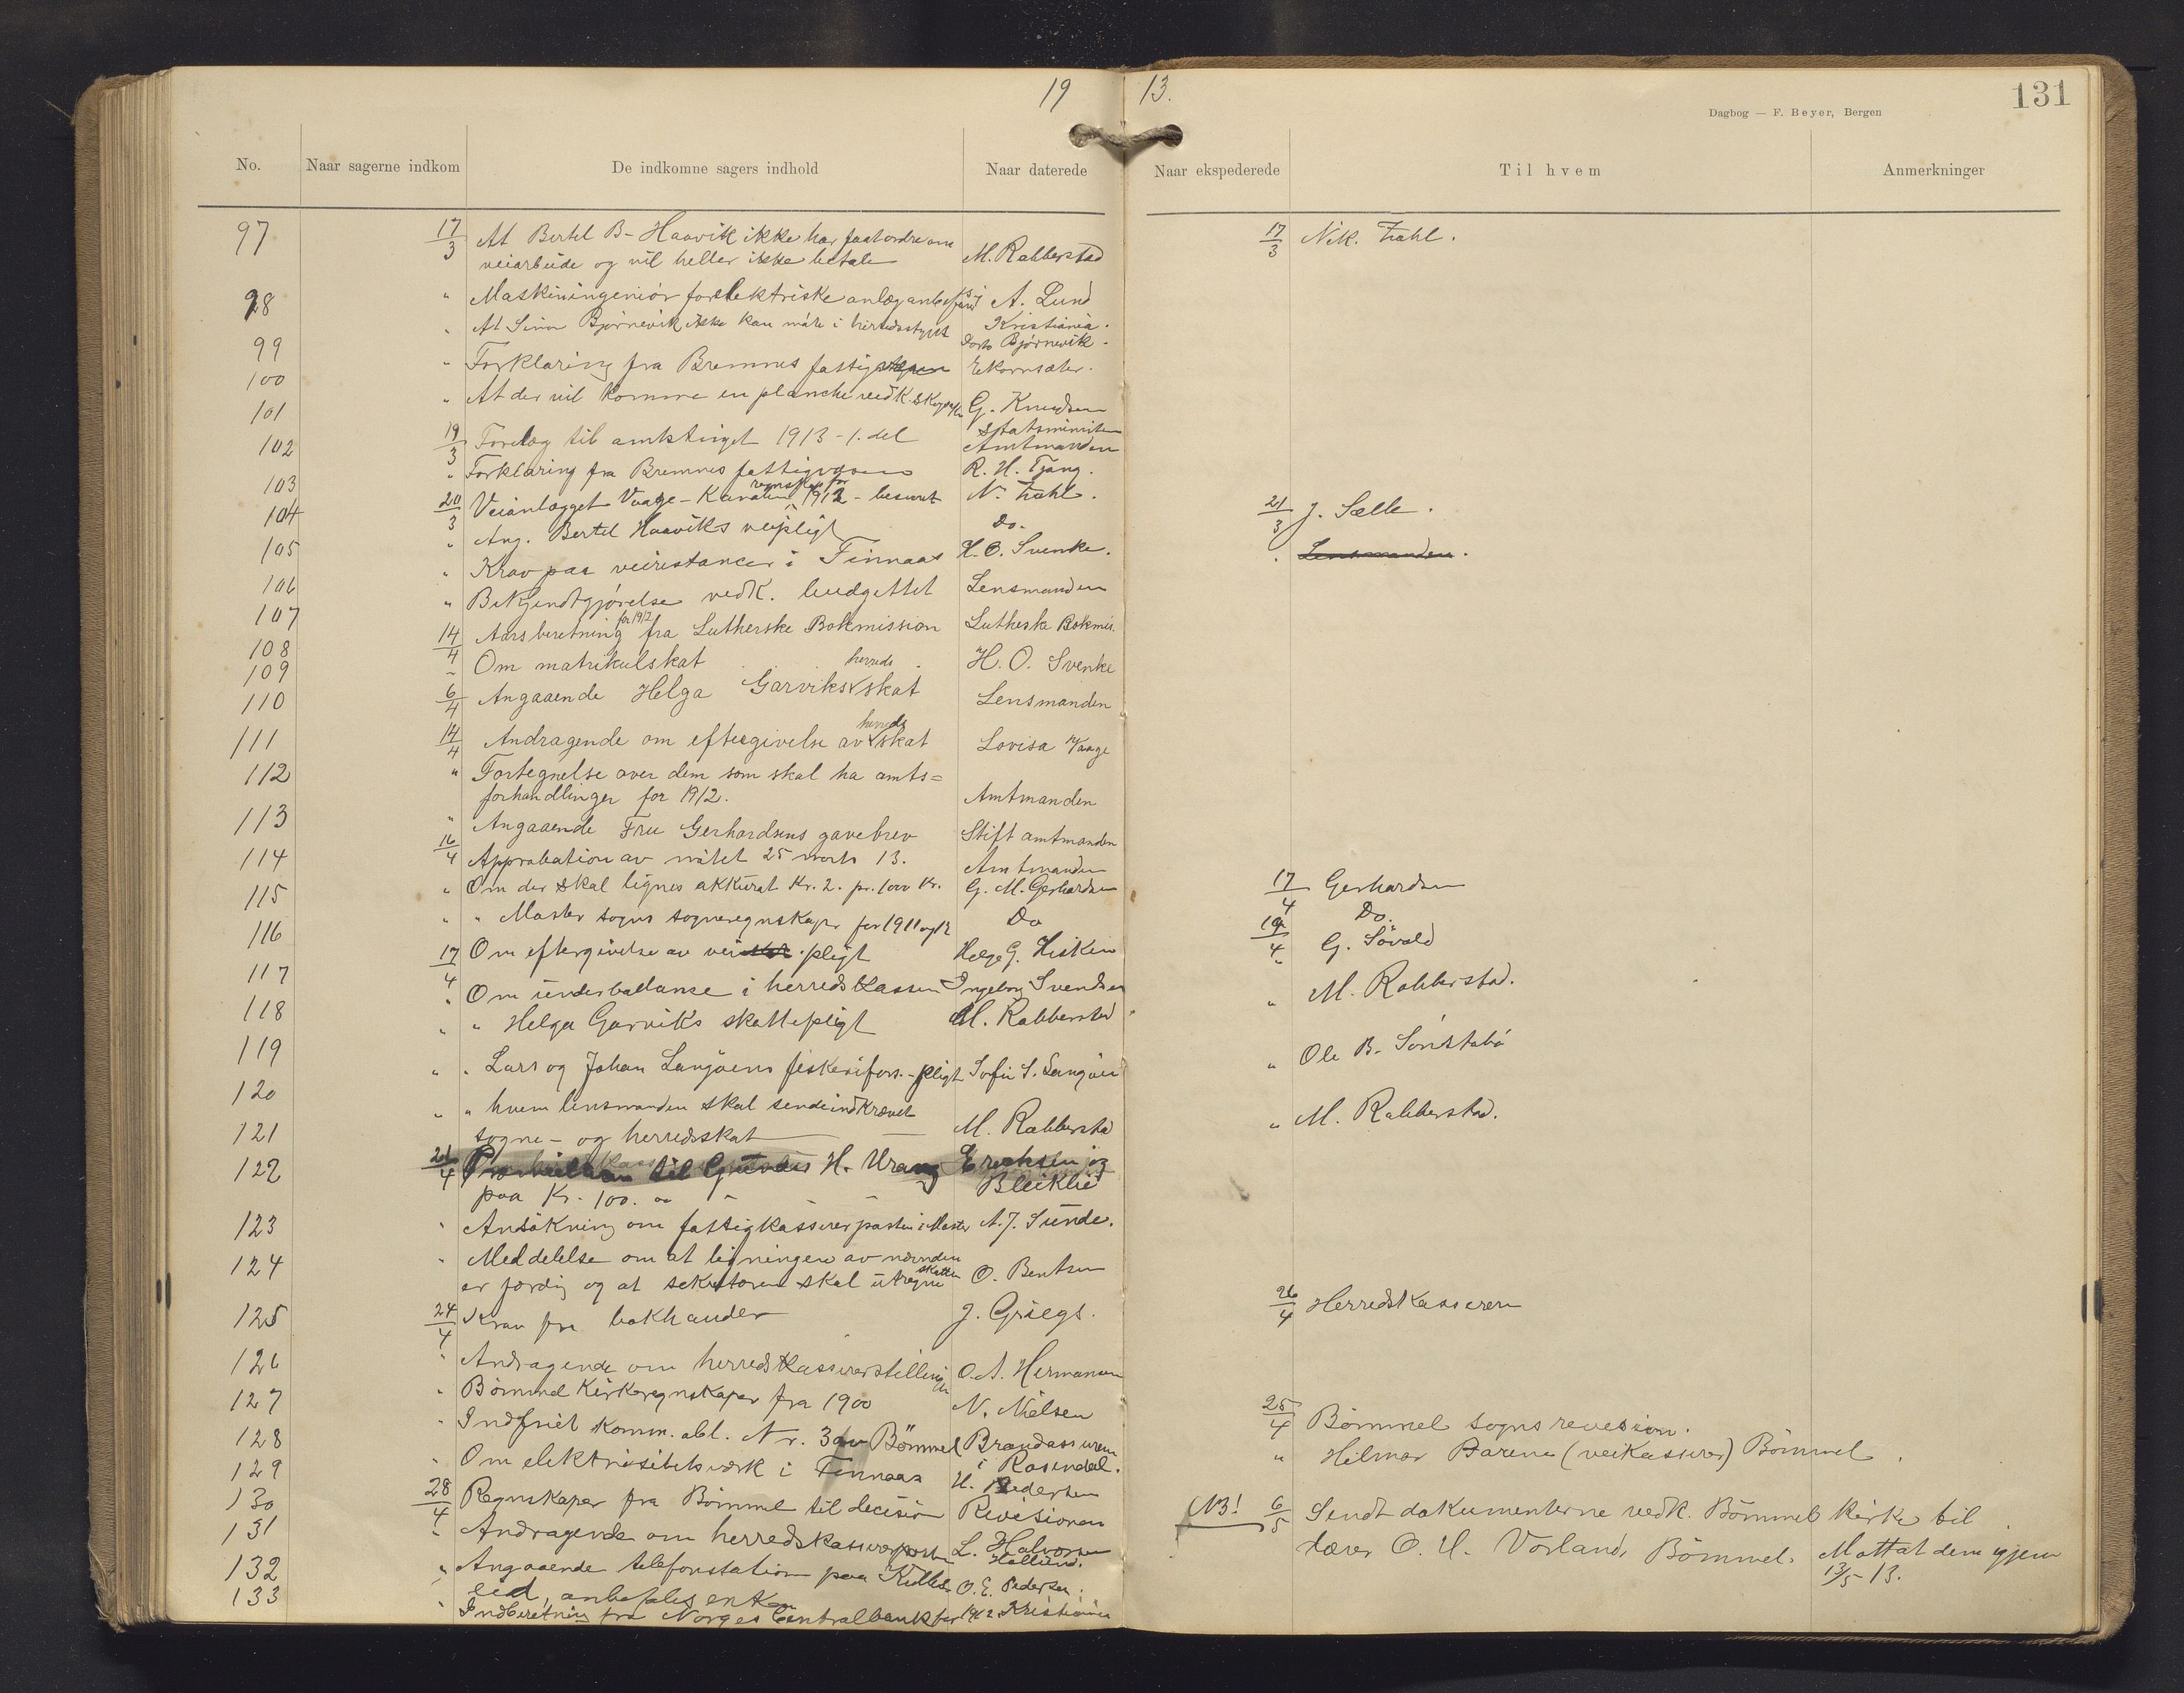 19 13.
131
Dagbog — F. Beyer, Bergen
No. Naar sagerne indkom De indkomne sagers indhold Naar daterede Naar ekspederede Til hvem Anmerkninger
97 17/3 At Bertel B- Haavik ikke har faat ordre om
veiarbeide og vil heller ikke betale M. Rabberstad 17/3 Nik. Fahl.
98 " Maskiningeniør for elektriske anlæg A. Lund
Kristiania.
99 " At Simon Bjørnevik ikke kan møte i herredsstyret Bjørnevik.
100 " Forklaring fra Bremnes fattigvæsen Ekornsæter.
101 " At der vil komme en planche vedk. G. Knudsen
statsminister
102 19/3 Forelæg til amtstinget 1913 - 1. del Amtmanden
103 " Forklaring fra Bremnes fattigvæsen R. H. Tjang.
104 20/3 Veianlægget Vaage - Kanalen regnskap for 1912 - besvaret N. Fahl. 21/3 J. Sælle.
105 " Ang. Bertel Haaviks veipligt Do. " Lensmanden.
106 " Krav paa veirestancer i Finnaas H. O. Svenke.
107 " Bekjendtgjørelse vedk. budgettet Lensmanden
108 14/4 Aarsberetning for 1912 fra Lutherske Bokmission Lutherske Bokmis.
109 " Om matrikulskat H. O. Svenke
110 6/4 Angaaende Helga Garviks herredsskat Lensmanden
111 14/4 Andragende om eftergivelse av herredsskat Lovisa Vaage
112 " Fortegnelse over dem som skal ha amts=
forhandlinger for 1912. Amtmanden
113 " Angaaende Fru Gerhardsens gavebrev Stiftamtmanden
114 16/4 Approbation av møtet 25 marts 13. Amtmanden
115 " Om der skal lignes akkurat Kr. 2. pr. 1000 Kr. G. M. Gerhardsen 17/4 Gerhardsen
116 " " Moster sogns sogneregnskaper for 1911 og 12 Do Do.
117 17/4 Om eftergivelse av veipligt Helge G. Hisken 19/4 G. Søvold
118 " Om underballanse i herredskassen Ingeborg Svendsen " M. Rabberstad.
119 " " Helga Garviks skattepligt M. Rabberstad
120 " " Lars og Johan Langøens fiskerifors.-pligt Sofie S. Langøen " Ole B. Sønstabø
121 " " hvem lensmanden skal sende indkrævet
sogne- og herredsskat M. Rabberstad " M. Rabberstad.
122 21/4 til H. Vrang Erichsen og
paa Kr. 100.00 Bleiklie
123 " Ansøkning om fattigkassererposten i Moster A. J. Sunde.
124 " Meddelelse om at ligningen av nævnden
er færdig og at sekretæren skal utregne skatten O. Bentsen
125 24/4 Krav fra bokhandler J. Griegs. 26/4 Herredskasserer
126 " Andragende om herredskassererstillingen O. A. Hermansen
127 " Bømmel kirkeregnskaper fra 1900 N. Nielsen 25/4 Bømmel sogns revesion.
128 " Indfriet komm. obl. Nr. 3 av Bömmel Brandassuren
i Rosendal. " Hilmar Barene (veikasserer) Bømmel.
129 " Om elektrisitetsverk i Finnaas H. Pedersen
130 28/4 Regnskaper fra Bömmel til decision Revisionen NB! 6/5 Sendt dokumenterne vedk. Bömmel kirke til
131 " Andragende om herredskassererposten L. Halvorsen
Hallund. lærer O. H. Vorland, Bømmel. Mottat dem igjen
13/5 13.
132 " Angaaende telefonstation paa
eid, anbefales O. E. Pedersen.
133 " Indberetning fra Norges Centralbank for 1912 Kristiania